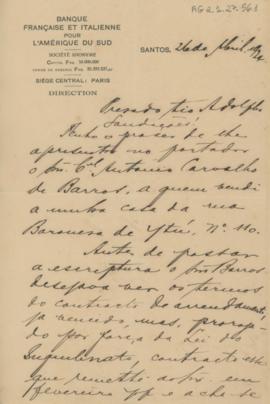 AG2.2.27.561
BANQUE
FRANÇAISE ET ITALIENNE
POUR
L'AMÉRIQUE DU SUD
SOCIÉTÉ ANONYME
SIÈGE CENTRAL: PARIS
DIRECTION
SANTOS, 26 de Abril
Presado tio Adolpho
Saudações!
Tenho o prazer de lhe
apresentar no portador
o Snr. Cel. Antonio Carvalho
de Barros, a quem vendi
a minha casa da rua
Baroneza de Ytú, Nº 110.
Antes de passar
a escriptura o Snr. Barros
desejava ver os termos
do contracto de arrendamento,
já vencido, mas, proroga-
do por força da Lei do
Inquilinato, contracto este
que remetti em
fevereiro pp e acha-se